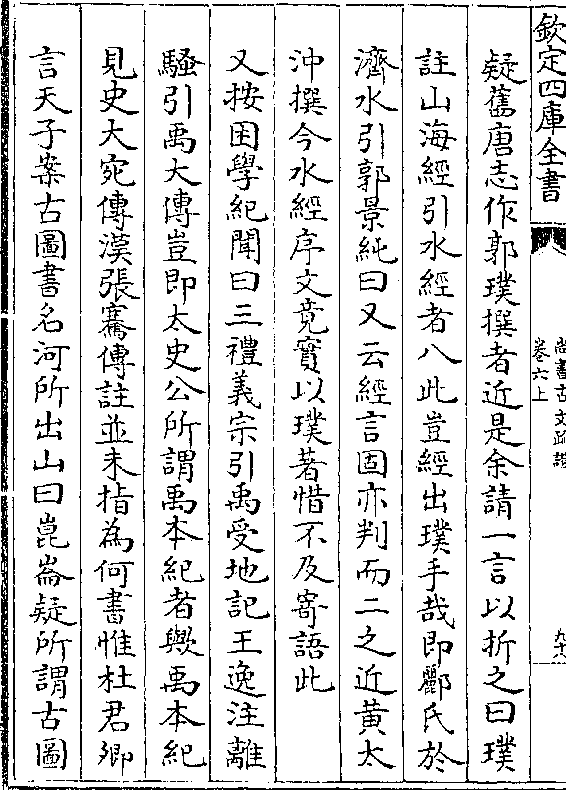 欽定四庫全書
尚書古文疏證
卷六上
疑舊唐志作郭璞撰者近是余請一言以折之曰璞
註山海經引水經者八此豈經出璞手哉即酈氏於
濟水引郭景純曰又云經言固亦判而二之近黃太
沖撰今水經序文竟實以璞著惜不及寄語此
又按困學紀聞曰三禮義宗引禹受地記王逸注離
騷引禹大傳豈即太史公所謂禹本紀者歟禹本紀
見史大宛傳漢張騫傳註並未指為何書惟杜君卿
言天子案古圖書名河所出山曰崑崙疑所謂古圖